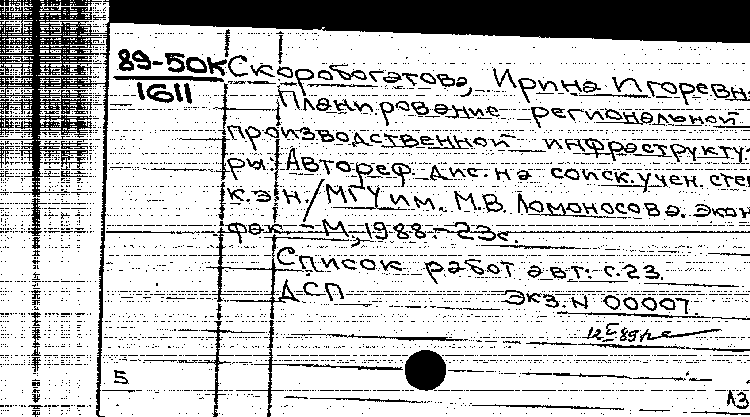 89-50К Скоробогатова, Ирина Игоревна
1611
Планирование региональной
производственной инфраструкту-
ры: Автореф. дис. на соиск. учен. степ
к.э.н. / МГУ им. М.В. Ломоносова. экон
фак. - М., 1988. - 23с.
Список работ авт: с.23.
ДСП Экз. N 00007.
5